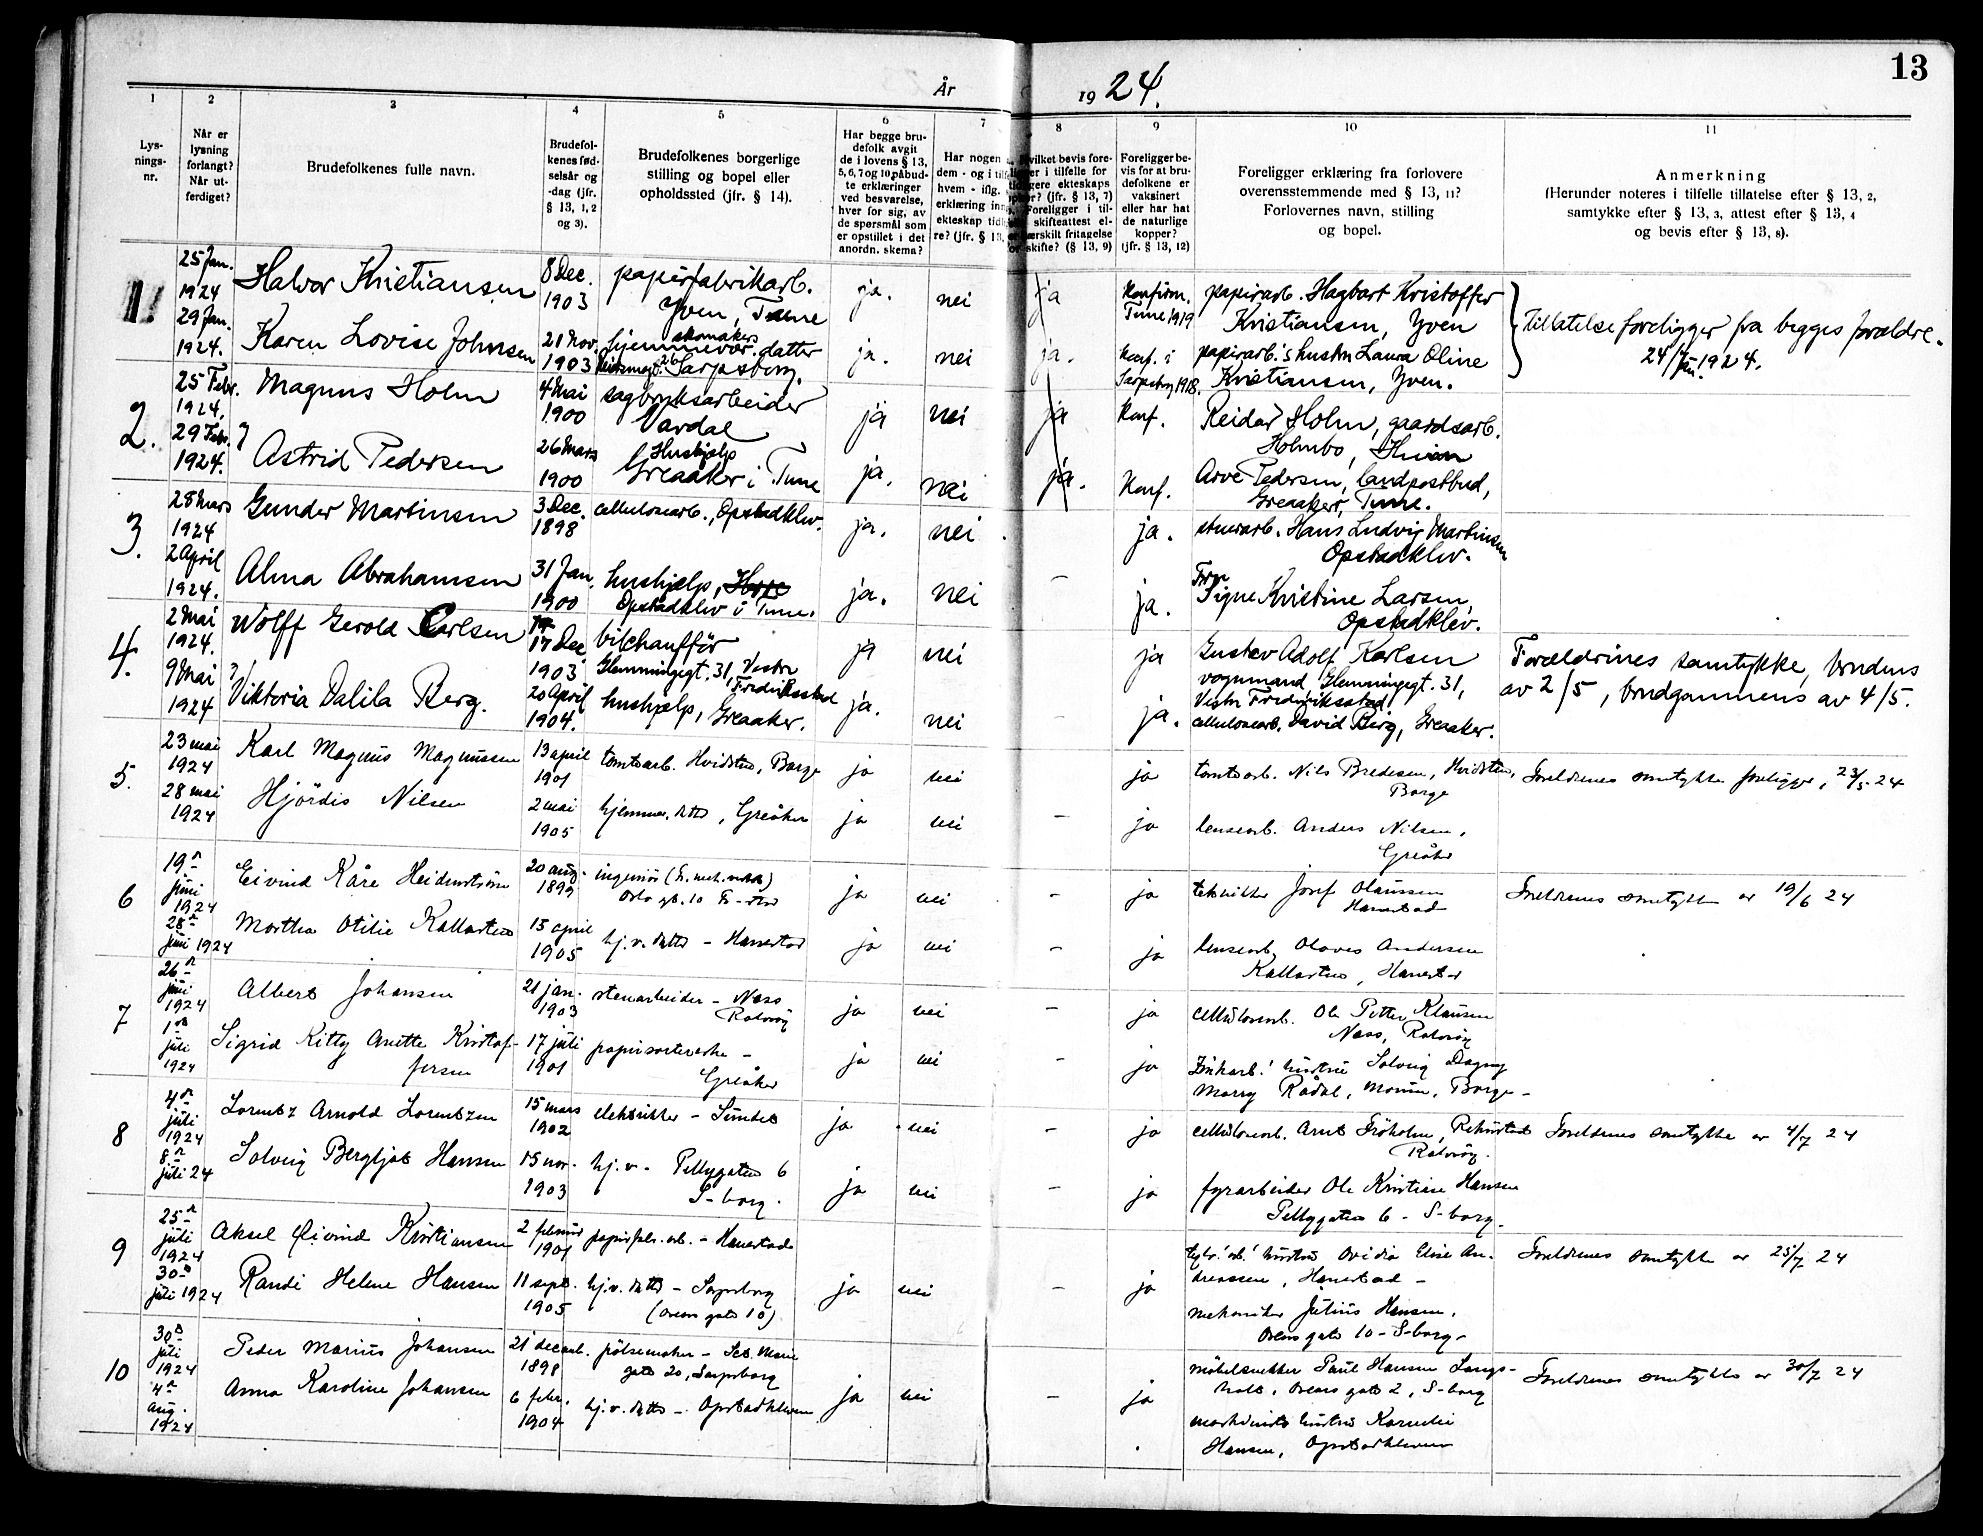 13
År 1924.
1 2 3 4 5 6 7 8 9 10 11
Lysningsnr.
Når er lysning forlangt? Når utferdiget?
Brudefolkenes fulle navn.
Brudefolkenes fødselsår og -dag (jfr. § 13, 1, 2 og 3).
Brudefolkenes borgerlige stilling og bopel eller opholdssted (jfr. § 14).
Har begge brudefolk avgit de i lovens § 13, 5, 6, 7 og 10, påbudte erklæringer ved besvarelse, hver for sig, av de spørsmål som er opstillet i det anordn. skema?
Har nogen dem - og i hvem - iflg. erklæring ekteskap re? (jfr. § 13,
bevis i tilfelle for ekteskaps (jfr. § 13, 7) Foreligger i skifteattest fritagelse skifte? (§ 13, 9)
Foreligger bevis for at brudefolkene er vaksinert eller har hat de naturlige kopper? (jfr. § 13, 12)
Foreligger erklæring fra forlovere overensstemmende med § 13, 11? Forlovernes navn, stilling og bopel.
Anmerkning (Herunder noteres i tilfelle tillatelse efter § 13, 2, samtykke efter § 13, 3, attest efter § 13, 4 og bevis efter § 13, 8).
1. 25 Jan. 1924 Halvor Kristiansen 8 Dec. 1903 papirfabrikarb. Yven, Tune ja. nei ja Konfirm. Tune 1919 papirarb. Hagbart Kristoffer Kristiansen, Yven Tillatelse foreligger fra begges forældre. 24/1 Jan. 1924.
29 Jan. 1924. Karen Lovise Johnsen 21 Nov. 1903 skomakers hjemmevær. datter 26 Sarpsborg. ja. nei ja. Konf. i Sarpsborg 1918. papirarb.'s hustru Laura Oline Kristiansen, Yven.
2. 25 Febr. 1924, Magnus Holm 4 Mai 1900 sagbruksarbeider Vardal ja nei ja Konf. Reidar Holm, gaardsarb. Holmbo,
29 Febr. 1924. Astrid Pedersen 26 Mars 1900 Hushjelp Greaaker i Tune ja. nei ja. Konf. Arve Pedersen, landpostbud, Greaaker, Tune.
3. 28 Mars 1924 Gunder Martinsen 3 Dec. 1898 cellulosearb., Opstadklev. ja. nei ja. stuerarb. Hans Ludvig Martinsen Opstadklev.
2 April 1924. Alma Abrahamsen 31 Jan. 1900 hushjelp, Opstadklev i Tune. ja. nei - ja. Fru Signe Kristine Larsen, Opstadklev.
4. 2 Mai 1924. Wolff Gerold Carlsen 17 Dec 1903 bilchauffør Glemmingegt. 31, Vestre Fredriksstad ja nei ja Gustav Adolf Karlsen vognmand, Glemmingegt. 31, Vestre Fredriksstad Forældrenes samtykke, brudens av 2/5, brudgommens av 4/5.
9 Mai 1924 Viktoria Dalila Berg. 20 April 1904. hushjelp, Greaaker. ja. nei - ja. cellulosearb. David Berg, Greaaker.
5. 23 mai 1924 Karl Magnus Magnussen 13 april 1901 tomtearb. Hvidsten, Borge ja nei ja tomtearb. Nils Bredesen, Hvidsten, Borge Foreldrenes samtykke foreligger, 23/5 24
28 mai 1924 Hjördis Nilsen 2 mai 1905 hjemmev. datter, Greåker ja nei - ja lensearb. Anders Nilsen, Greåker
6 19de juni 1924 Eivind Kåre Heidenstrøm 20 aug. 1899 ingeniør Oslo gt. 10 Fr-stad ja nei - ja tekniker Josef Olaussen Hannestad Foreldrenes samtykke av 19/6 24
28de juni 1924 Martha Otilie Kallastuen 15 april 1905 hj. v. datter - Hannestad ja nei - ja lensearb. Olaves Andersen Kallastuen, Hannestad
7 26de juni 1924 Albert Johansen 21 jan. 1903 stenarbeider - Næss Rolvsøy ja nei - ja cellulosearb. Ole Petter Klausen Næss, Rolvsøy
1ste juli 1924 Sigrid Kitty Anette Kristoffersen 17 juli 1901 papirsorterske - Greåker ja nei - ja hustru Solveig Dagny Marry Rådal, Moum, Borge -
8 4de juli 1924 Lorentz Arnold Lorentzen 15 mars 1902 elektriker - Sundet ja nei - ja cellulosearb. Arnt Frøholm, Rekustad Rolvsøy. Foreldrenes samtykke av 4/7 24
8de juli 24 Solveig Bergljot Hansen 15 nov. 1903 hj. v. - Pellygaten 6 S-borg. ja nei - ja fyrarbeider Ole Kristian Hansen Pellygaten 6 - S-borg.
9 25de juli 1924 Aksel Øivind Kristiansen 2 februar 1901 papirfabr. arb. - Hannestad hustru Ovidia Elise Andreassen, Hannestad - Foreldrenes samtykke av 25/7 24
30te juli 1924 Randi Helene Hansen 11 sept. 1905 hj. v. datter - Sarpsborg (Ovens gate 10) ja nei - ja mekaniker Julius Hansen, Ovens gate 10 - S-borg -
10 30te juli 1924 Peder Marius Johansen 21 decemb. 1898 pølsemaker - Sct. Marie gate 20, Sarpsborg møbelsnekker Paul Hansen Langsholt, Ovens gate 2, S-borg Foreldrenes samtykke av 30/7 24
4de aug. 1924 Anna Karoline Johansen 6 febr. 1904 hj. v. datter - Opstadkleven ja nei - ja maskinists hustru Kornelie Hansen, Opstadkleven